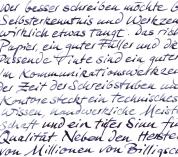 Wer besser schreiben möchte b
Selbsterkenntnis und Werkzeu
wirklich etwas tangt. Das rich
Papier, ein guter Füller und de
passende Tinte sind ein guter
Im Kommunikationswerkze
der Zeit der Schreibstuben u
Kontore steckt ein technisches
Wissen, handwerkliche Meist
schaft und ein tiefes Sinn für
Qualität. Neben den Herstel
von Millionen von Billigsch